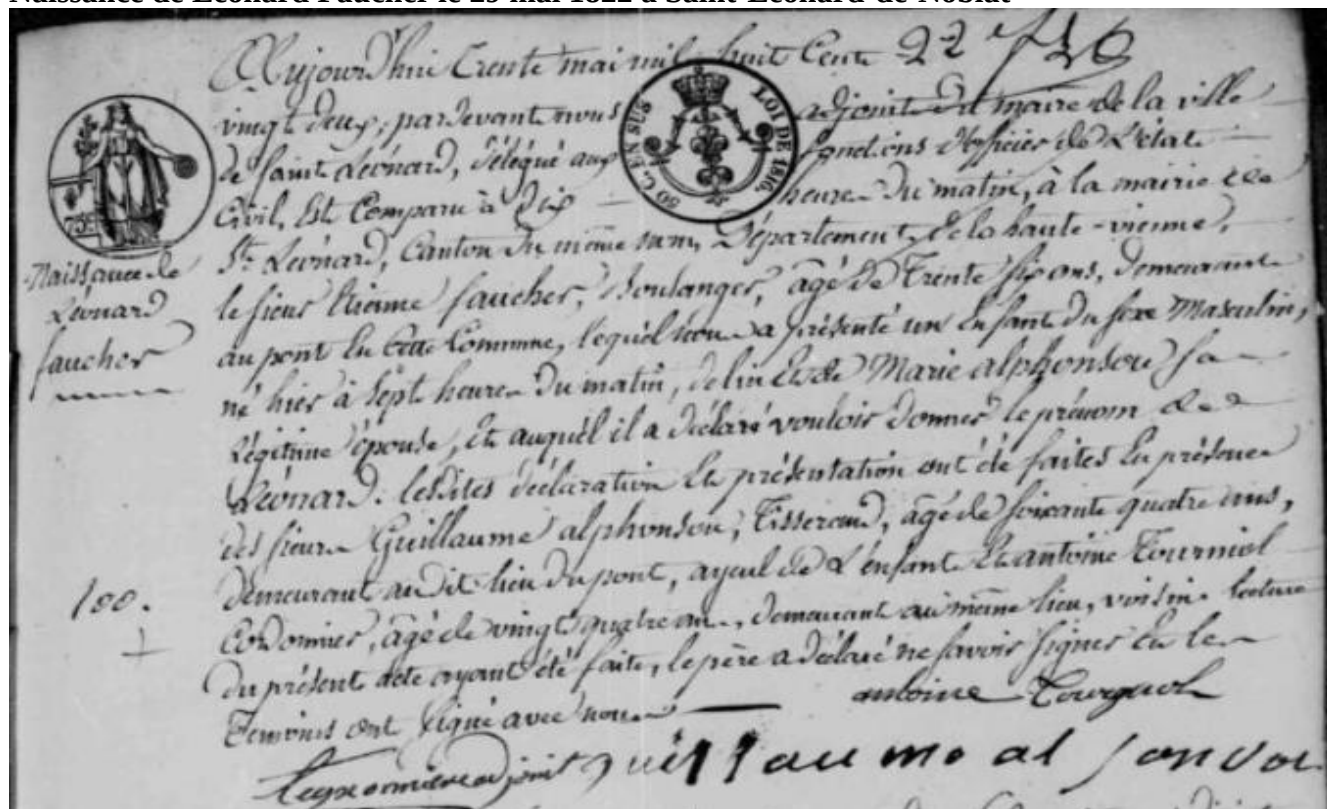 Naissance de Léonard Faucher le 29 mai 1822 à Saint-Léonard-de-Noblat
Aujourd'hui trente mai mil huit cent 22
vingt deux, pardevant nous adjoint du maire de la ville
de saint Léonard, délégué aux fonctions d'officier de l'état
Civil, Est Comparu à dix heures du matin, à la mairie de
St. Léonard, Canton du même nom, Département de la haute-vienne,
le sieur Etienne faucher, Boulanger, âgé de trente six ans, demeurant
au pont en cette Commune, lequel nous a présenté un Enfant du sexe Masculin,
né hier à sept heures du matin, de lui et de Marie alphonsou sa
légitime épouse, et auquel il a déclaré vouloir donner le prénom de
Léonard. lesdites déclaration et présentation ont été faites en présence
des sieurs Guillaume alphonsou, Tisserand, âgé de soixante quatre ans,
demeurant audit lieu du pont, ayeul de l'enfant et antoine Tourniol
Cordonnier, âgé de vingt quatre ans, demeurant au même lieu, voisin. lecture
du présent acte ayant été faite, le père a déclaré ne savoir signer et les
témoins ont signé avec nous
antoine
adjoint
75c.
50 C. EN SUS
LOI DE 1816.
Naissance de
Léonard
faucher
100.